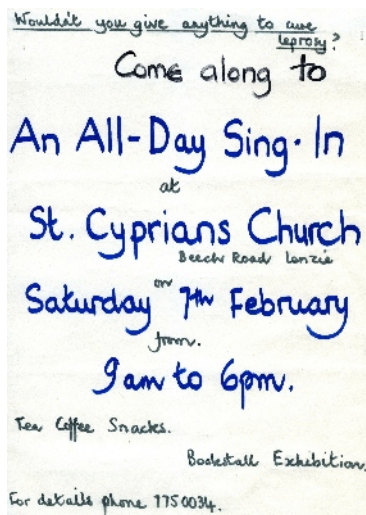 Wouldn't you give anything to cure
leprosy?
Come along to
An All-Day Sing-In
at
St. Cyprians Church
Beech Road Lenzie
on
Saturday 7th February
from.
9am to 6pm.
Tea Coffee Snacks.
Bookstall Exhibition.
For details phone 7750034.